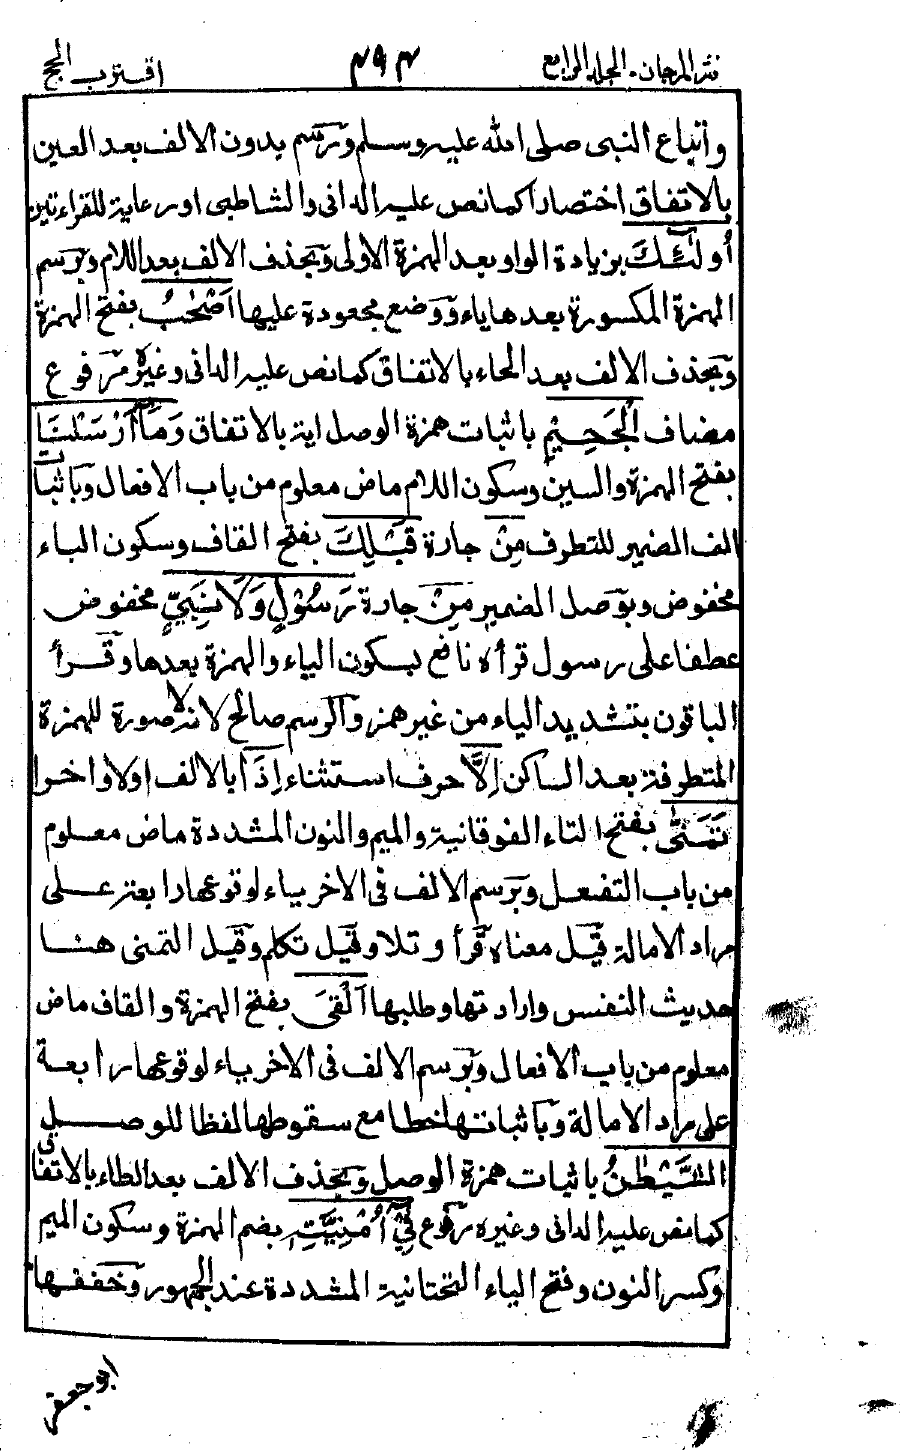 نثر المرجان - المجلد الرابع ٤٩٣ اقترب الحج
واتباع النبى صلى الله عليه وسلم وترسم بدون الالف بعد العين
بالاتفاق اختصارا كما نص عليه الدانى والشاطبى او رعاية للقراءتين
أُولٰئِكَ بزيادة الواو بعد الهمزة الاولى وبحذف الالف بعد اللام وبرسم
الهمزة المكسورة بعدها ياء ووضع مجعودة عليها اَصْحٰبُ بفتح الهمزة
وبحذف الالف بعد الحاء بالاتفاق كما نص عليه الدانى وغيره مرفوع
مضاف الْجَحِيْمِ باثبات همزة الوصل اية بالاتفاق وَمَآ أَرْسَلْنَا
بفتح الهمزة والسين وسكون اللام ماض معلوم من باب الافعال وباثبات
الف الضمير للتطرف مِنْ جارة قَبْلِكَ بفتح القاف وسكون الباء
مخفوض وبوصل الضمير مِنْ جارة رَسُوْلٍ وَلَا نَبِيٍّ مخفوض
عطفا على رسول قرأه نافع بسكون الياء والهمزة بعدها وقرأ
الباقون بتشديد الياء من غير همز والرسم صالح لانه لا صورة للهمزة
المتطرفة بعد الساكن اِلَّا حرف استثناء اِذَا بالالف اولا واخرا
تَمَنّٰى بفتح التاء الفوقانية والميم والنون المشددة ماض معلوم
من باب التفعل وبرسم الالف فى الاخر ياء لوقوعها رابعة على
مراد الامالة قيل معناه قرأ وتلا وقيل تكلم وقيل التمنى هنا
حديث النفس وارادتها وطلبها اَلْقَى بفتح الهمزة والقاف ماض
معلوم من باب الافعال وبرسم الالف فى الاخر ياء لوقوعها رابعة
على مراد الامالة وباثباتها خطا مع سقوطها لفظا للوصل
الشَّيْطٰنُ باثبات همزة الوصل وبحذف الالف بعد الطاء بالاتفاق
كما نص عليه الدانى وغيره مرفوع فِيْ اُمْنِيَّتِهٖ بضم الهمزة وسكون الميم
وكسر النون وفتح الياء التحتانية المشددة عند الجمهور وخففها
ابو جعفر